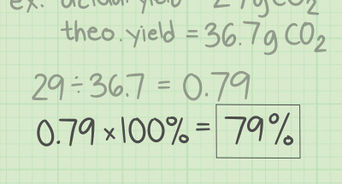 ex. actual yield = 29g CO₂
theo. yield = 36.7g CO₂
29 ÷ 36.7 = 0.79
0.79 × 100% = 79%